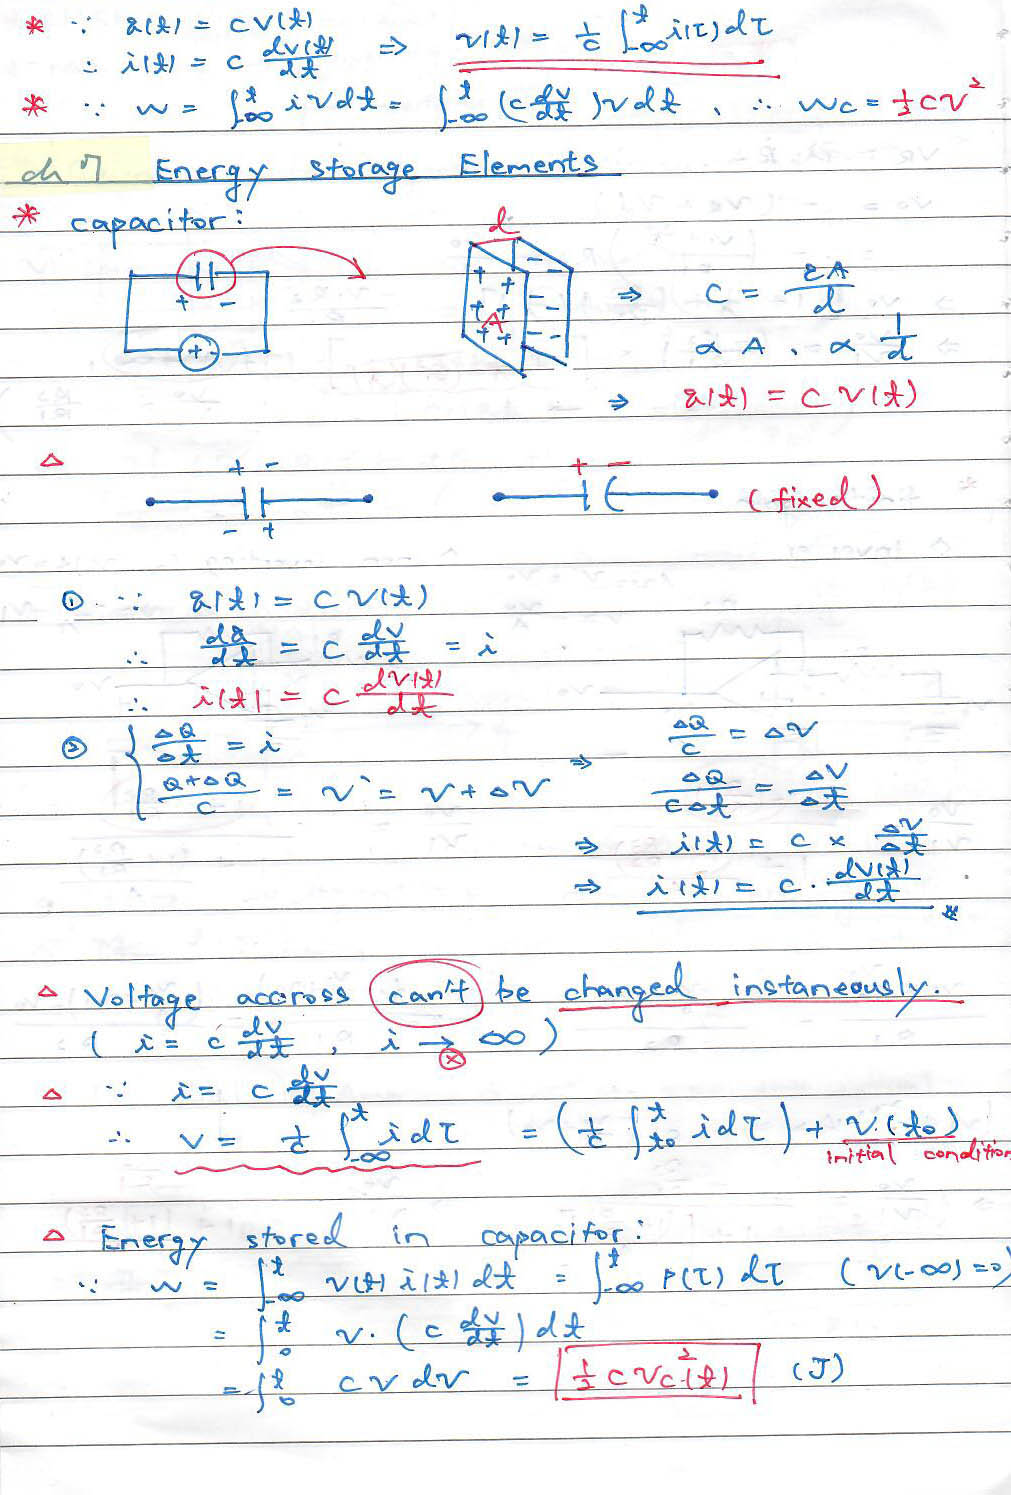 * ∵ q(t) = C V(t)
∴ i(t) = C dv(t)/dt ⇒ v(t) = 1/C ∫_{-∞}^{t} i(τ) dτ
* ∵ W = ∫_{-∞}^{t} i v dt = ∫_{-∞}^{t} (C dv/dt) v dt , ∴ Wc = 1/2 C V²
ch 7 Energy storage Elements
* capacitor:
d
+ -
+ -
A
⇒ C = εA/d
∝ A 、 ∝ 1/d
⇒ q(t) = C V(t)
△ + - + - (fixed)
- +
① ∵ q(t) = C V(t)
∴ dq/dt = C dv/dt = i
∴ i(t) = C dv(t)/dt
② { ΔQ/Δt = i
(Q+ΔQ)/C = V' = V + ΔV
⇒ ΔQ/C = ΔV
ΔQ/(CΔt) = ΔV/Δt
⇒ i(t) = C × ΔV/Δt
⇒ i(t) = C · dv(t)/dt #
△ Voltage accross can't be changed instaneously.
( i = C dv/dt , i → ∞ )
⊗
△ ∵ i = C dv/dt
∴ V = 1/C ∫_{-∞}^{t} i dτ = (1/C ∫_{t0}^{t} i dτ) + V(t0)
initial condition
△ Energy stored in capacitor:
∵ W = ∫_{-∞}^{t} V(t) i(t) dt = ∫_{-∞}^{t} P(τ) dτ (V(-∞) = 0)
= ∫_{0}^{t} V · (C dv/dt) dt
= ∫_{0}^{t} C V dv = 1/2 C Vc²(t) (J)